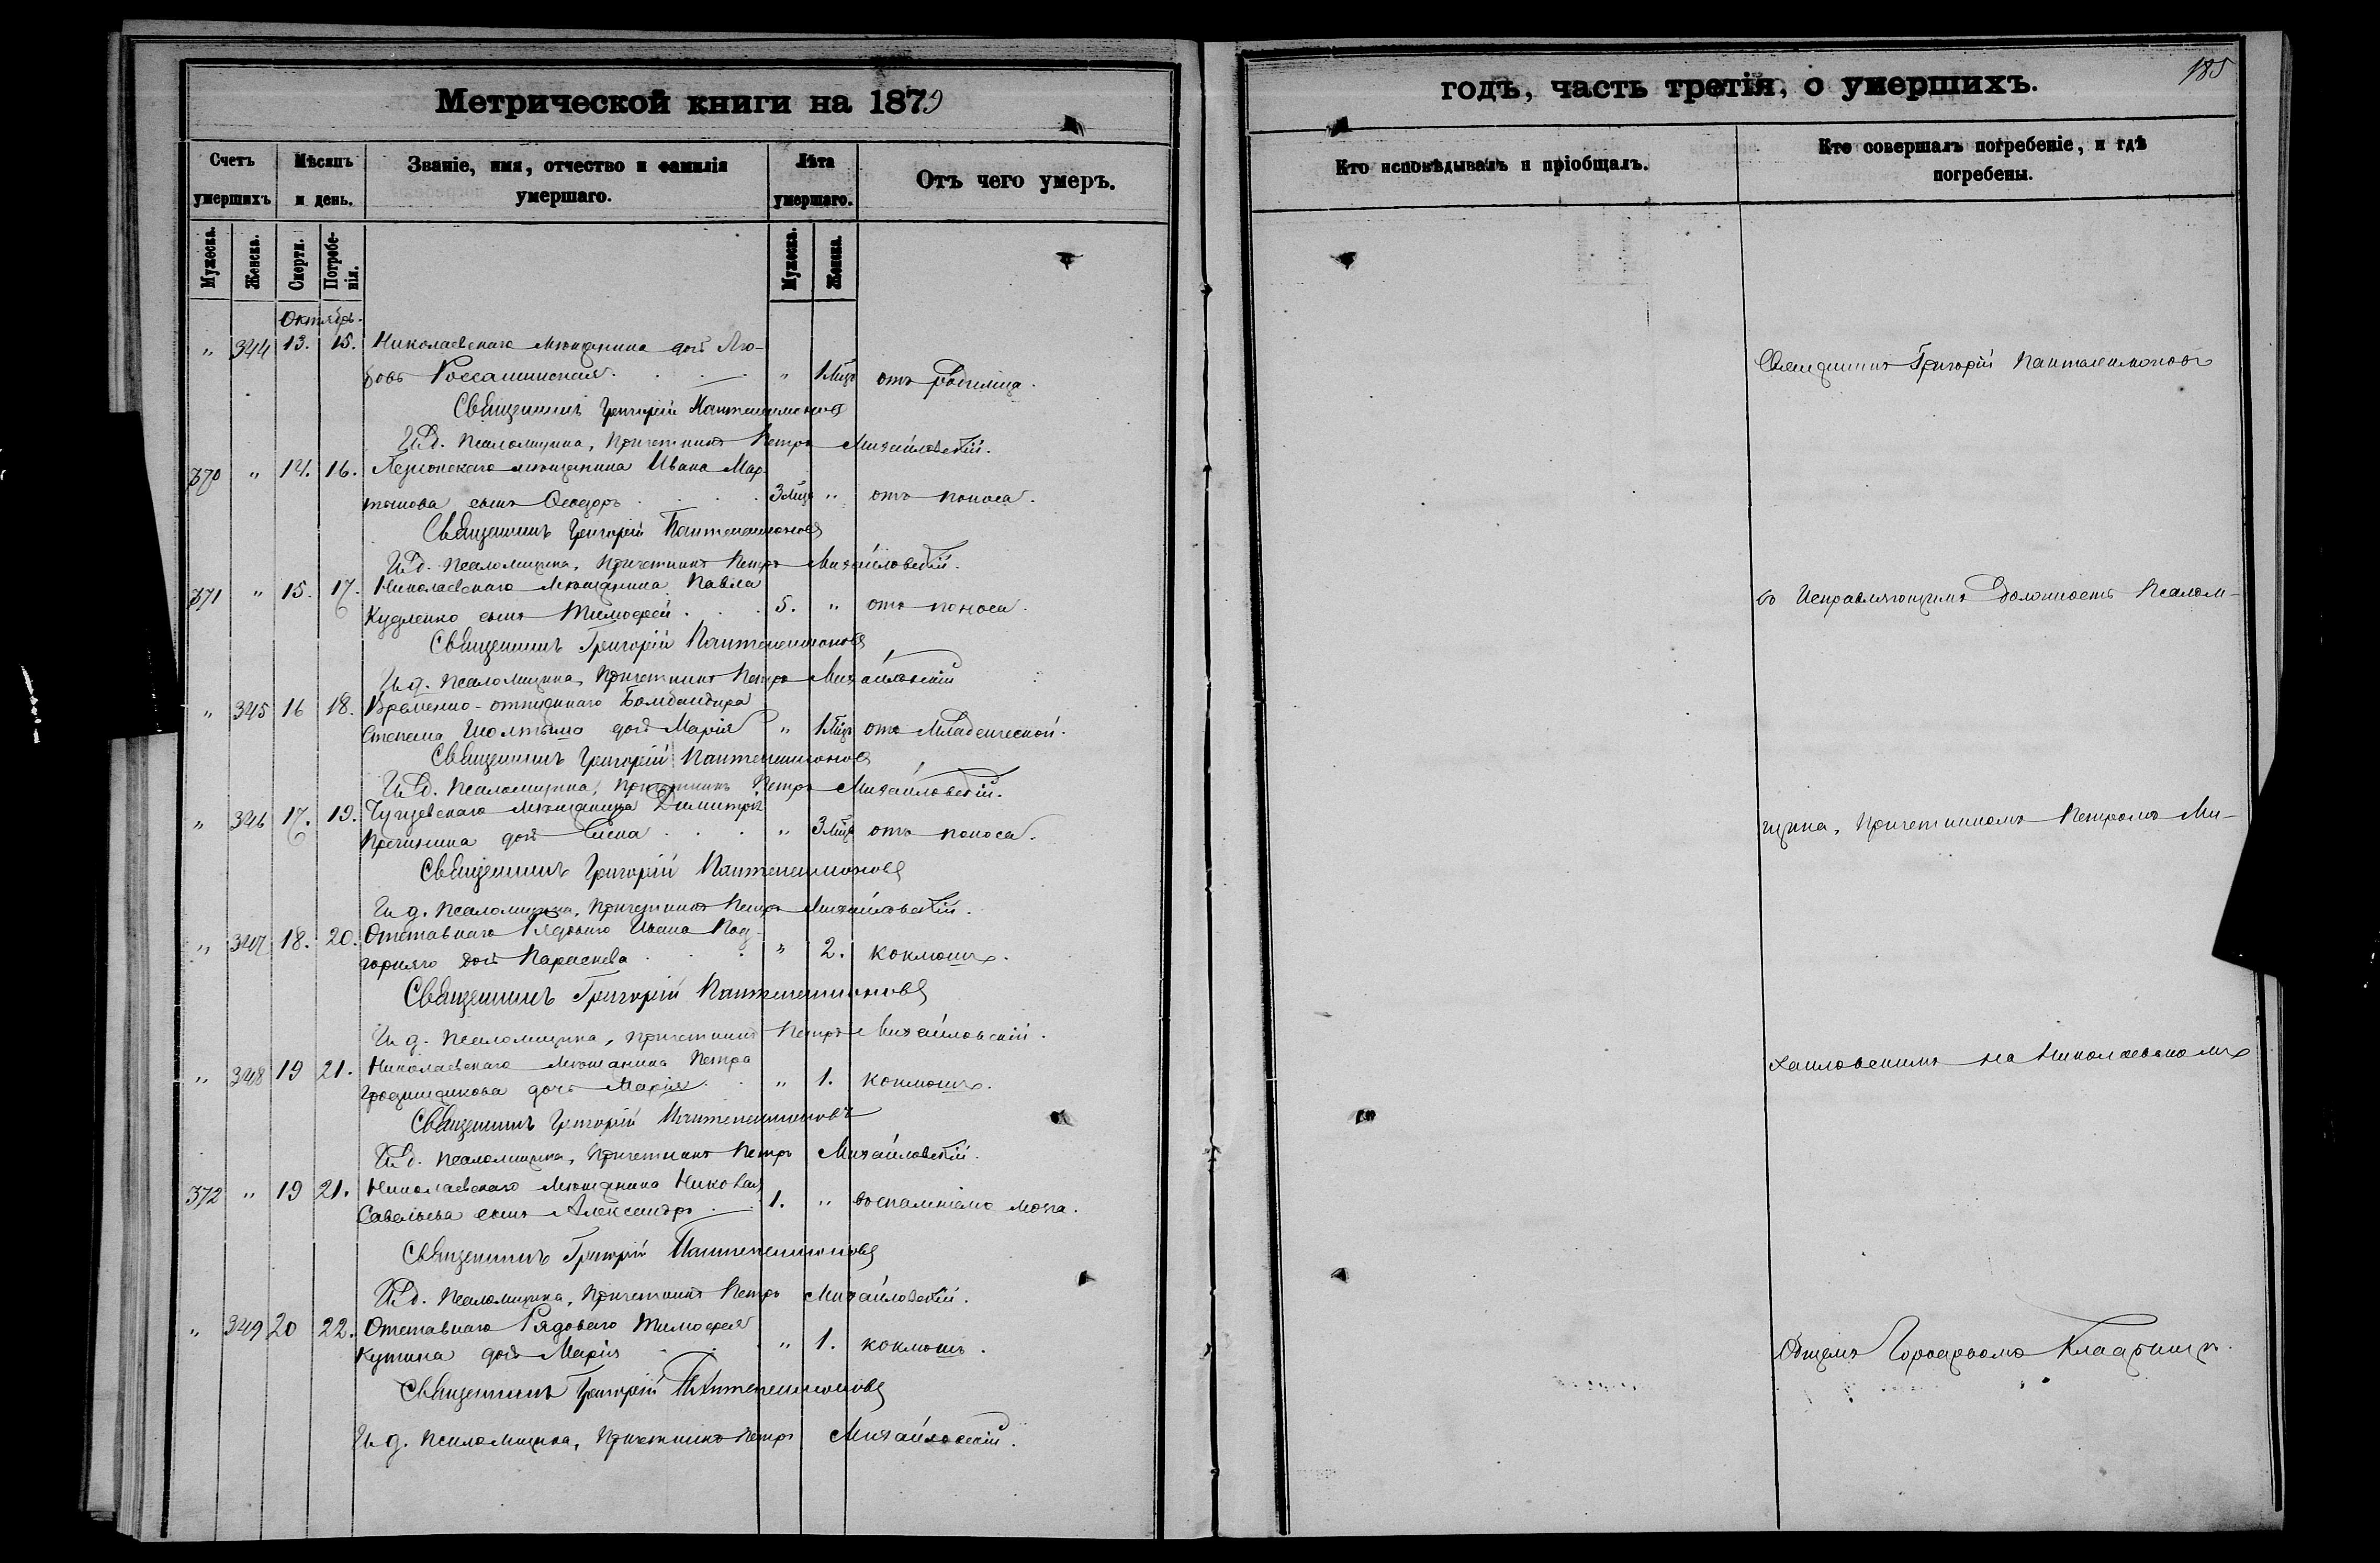 Метрической книги на 1879
Счетъ умершихъ
Мѣсяцъ и день.
Званіе, имя, отчество и фамилія умершаго.
Лѣта умершаго.
Отъ чего умеръ.
Мужеска.
Женска.
Смерти.
Погребенія.
Мужеска.
Женска.
Октябрь.
" 344 13. 15. Николаевскаго мѣщанина дочь Лю-
бовь " 1 мѣс. отъ родимца.
Священникъ Григорій Пантелеимоновъ
И. д. Псаломщика, Причетникъ Петръ Михайловскій.
370 " 14. 16. мѣщанина Ивана Мар-
тынова сынъ Ѳеодоръ 3 мѣс. " отъ поноса.
Священникъ Григорій Пантелеимоновъ
И. д. Псаломщика, Причетникъ Петръ Михайловскій.
371 " 15. 17. Николаевскаго мѣщанина Павла
Кудленко сынъ Тимофей 5. " отъ поноса.
Священникъ Григорій Пантелеимоновъ
И. д. Псаломщика, Причетникъ Петръ Михайловскій
" 345 16 18. Временно-отпускнаго Бомбандира
Степана дочь Марія " 1 мѣс. отъ Младенческой.
Священникъ Григорій Пантелеимоновъ
И. д. Псаломщика, Причетникъ Петръ Михайловскій.
" 346 17. 19. Чугуевскаго мѣщанина Димитрія
дочь Елена " 3 мѣс. отъ поноса.
Священникъ Григорій Пантелеимоновъ
И. д. Псаломщика, Причетникъ Петръ Михайловскій.
" 347 18. 20. Отставнаго Рядоваго Ивана Под-
горняго дочь Параскева " 2. коклюшъ.
Священникъ Григорій Пантелеимоновъ
И. д. Псаломщика, Причетникъ Петръ Михайловскій.
" 348 19 21. Николаевскаго мѣщанина Петра
дочь Марія " 1. коклюшъ.
Священникъ Григорій Пантелеимоновъ
И. д. Псаломщика, Причетникъ Петръ Михайловскій.
372 " 19 21. Николаевскаго мѣщанина Николая
Савельева сынъ Александръ 1. " воспаленіемъ мозга.
Священникъ Григорій Пантелеимоновъ
И. д. Псаломщика, Причетникъ Петръ Михайловскій.
" 349 20 22. Отставнаго Рядоваго Тимофея
Кутина дочь Марія " 1. коклюшъ.
Священникъ Григорій Пантелеимоновъ
И. д. Псаломщика, Причетникъ Петръ Михайловскій.
185
годъ, часть третія, о умершихъ.
Кто исповѣдывалъ и пріобщалъ.
Кто совершалъ погребеніе, и гдѣ погребены.
Священникъ Григорій Пантелеимоновъ
съ Исправляющимъ Должность Псалом-
щика, Причетникомъ Петромъ Ми-
хайловскимъ на Николаевскомъ
Общемъ Городскомъ Кладбищѣ.